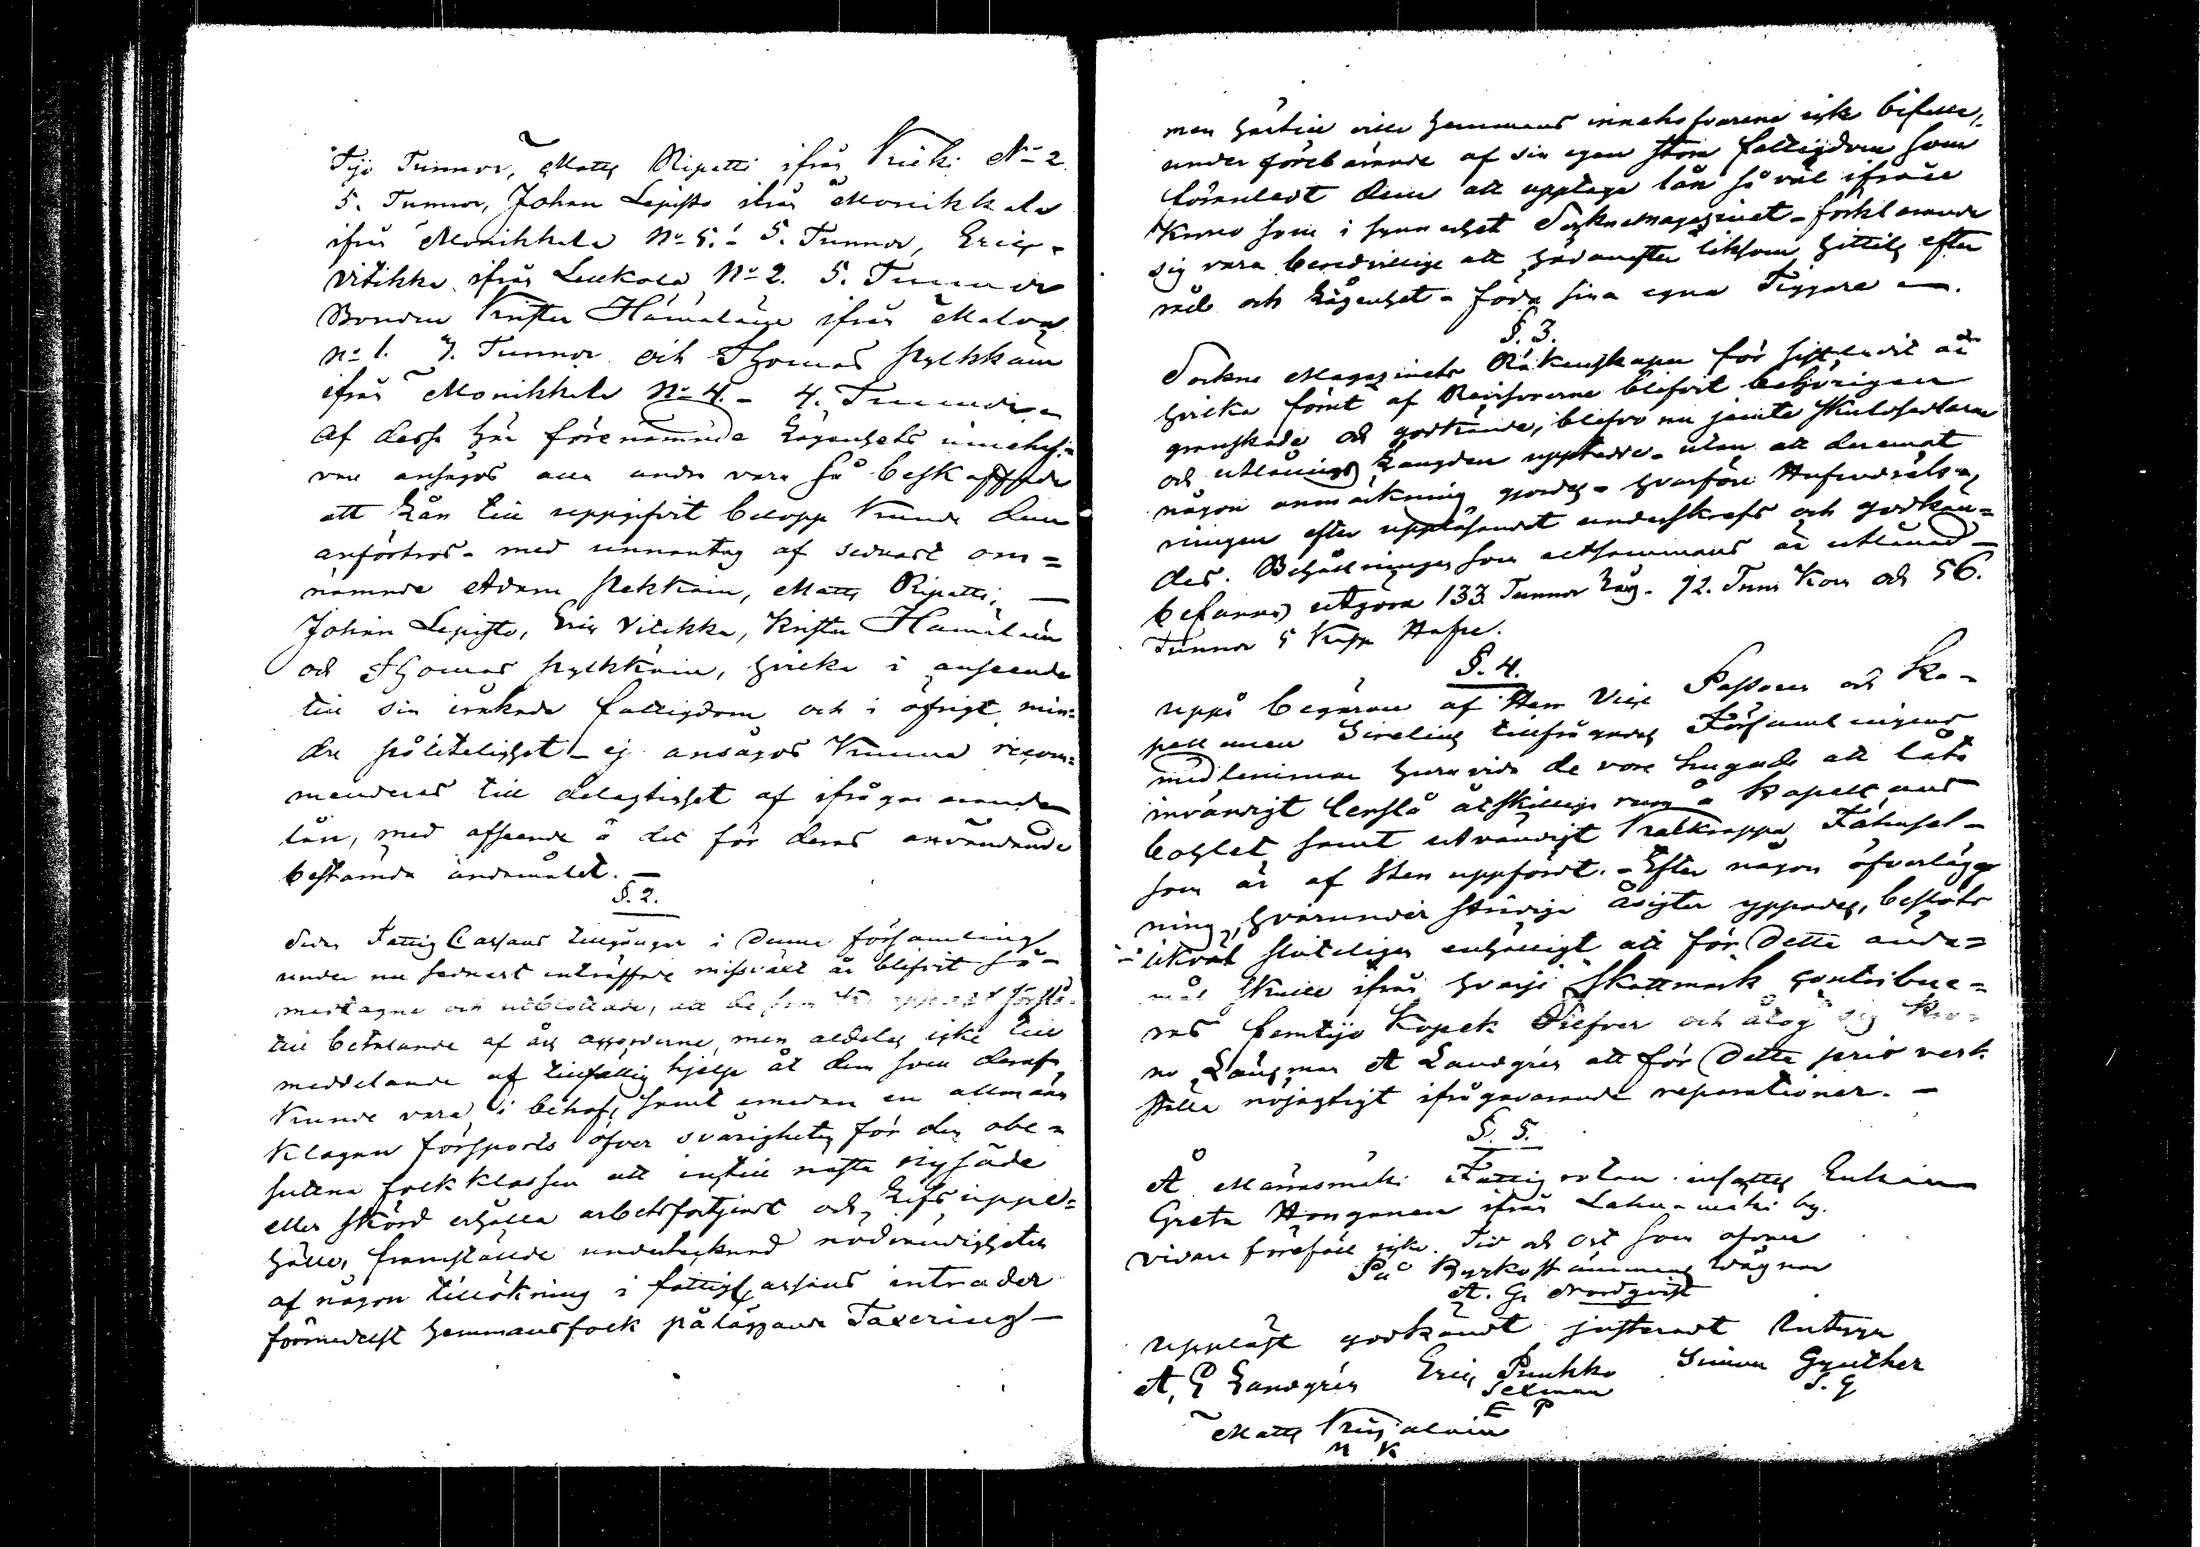 Tjo Tunnor, Matts Ripatti ifrån Kriki No 2
5. Tunnor, Johan Lepistö ifrån Monikkala
ifrån Monikkala No 5. - 5. Tunnor, Eric
Vitikka ifrån Leukola No 2. 5. Tunnor
Bonden Krister Hämäläin ifrån
No 1. 7. Tunnor och Thomas Pylkkäin
ifrån Monikkala No 4. - 4. Tunnor
Af dessa här förenämnde Lägenhets innehaf=
vare ansågos alla andra vara så beskaffade
att Lån till uppgifvit belopp kunde dem
anförtros - med unnantag af sednast om=
nämnde Adam Pekkain, Matts Ripatti, —
Johan Lepistö, Eric Vitikka, Krister Hämäläin
och Thomas Pylkkäin, hvilka i anseende
till sin iråkade fattigdom och i öfrigt min=
dre pålitelighet - ej ansågos kunna recom=
menderas till delagtighet af ifrågavarande
lån, med afseende å det för deras användande
bestämda ändamålet. —
§. 2.
Sedan Fattig Cassans tillgångar i denna församling
under nu sednast inträffade missväxt år blifvit så
medtagne och utblottade, att de förslå
till betalande af års accorderne, men aldeles icke till
meddelande af tillfällig hjelp åt dem som deraf
kunde vara i behof, samt emedan en allmän
klagan försports öfver svårigheten för den obe=
suttna folkklassen att intill nästa nysäde
eller skörd erhålla arbetsförtjenst och Lifsuppe=
hälle, framstälde undertecknad nödvändigheten
af någon tillökning i fattigCassans intrader
förmedelst hemmansfolk påläggande Taxering —
men härtill ville hemmans innehafvarene icke bifalla,
under föreburande af sin egen stora fattigdom som
förmledt dem att upptaga lån så väl ifrån
Krono som i synnerhet Sockne Magazinet - förklarande
sig vara beredvillige att hädanefter liksom hittils efter
råd och Lägenhet - föda sina egna Tiggare —.
§. 3.
Sockne Magazinets Räkenskaper för sistledit år
hvilka förut af Revisorerne blifvit behörigen
granskade och godkände, blefvo nu jemte Skuldsedlarne
och utlånings Längden uppläste - utan att deremot
någon anmärkning gjordes - hvarföre Hufvudräk=
ningen efter uppläsandet underskrefs och godkän=
des. Behållningen som alltsammans är utlånad —
befanns utgöra 133 Tunnor Råg - 92. Tunn Korn och 56.
Tunnor 5 Kapp Hafre.
§. 4.
Uppå begäran af Herr Vice Pastoren och Ka=
pellanen Sirelius tillfrågades Församlingens
medlemmar huruvida de vore hugade att låta
invändigt benslå åtskillige rum å Kapellans
bohlet samt utvändigt kalkrappa Fähuset -
som är af Sten uppfördt. - Efter någon öfverlägg
ning, hvarunder stridige åsigter yppades, beslöts
likväl sluteligen enhälligt att för detta ända=
mål skulle ifrån hvarje Skattmark contribue=
ras femtijo Kopek Silfver och åtog sig Kro=
no Länsman A Landgrén att för detta pris verk
ställa nöjagtigt ifrågavarande reparationer. —
§. 5.
Å Männämäki Fattig rotan insattes Enkan
Greta Honganen ifrån Lahnamäki by.
vidare föreföll icke. Tid och ort som ofvan
På Kyrkostämmans Vägnar
A. G. Nordqvist
Uppläst godkändt justeradt Intyga
A, G Landgrén Eric Puukko Simon Gynther
Sexman S. G
E P
Matts Krigalain
M K